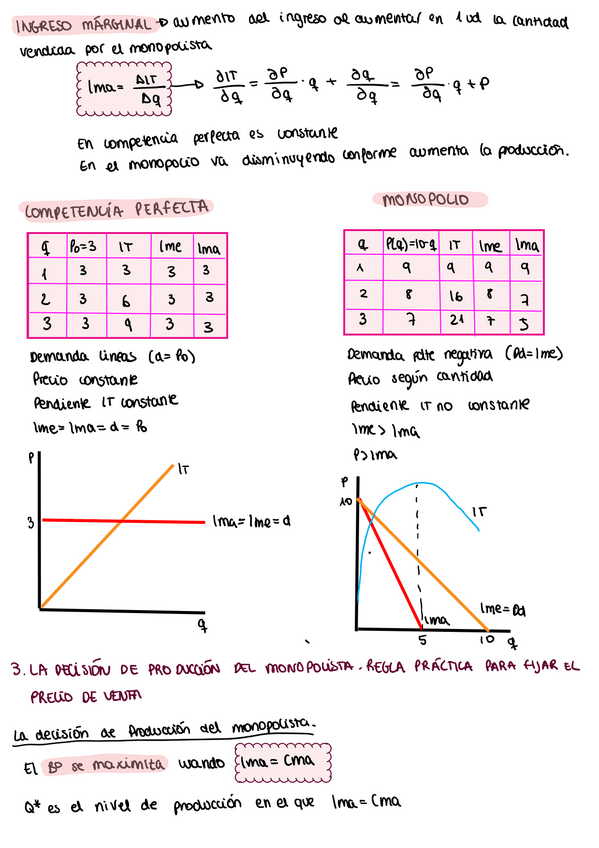 INGRESO MÁRGINAL → aumento del ingreso al aumentar en 1ud la cantidad
vendida por el monopolista
Ima = ΔIT/Δq → ∂IT/∂q = ∂P/∂q · q + ∂q/∂q = ∂P/∂q · q + P
En competencia perfecta es constante
En el monopolio va disminuyendo conforme aumenta la producción.
COMPETENCÍA PERFECTA
q P₀=3 IT Ime Ima
1 3 3 3 3
2 3 6 3 3
3 3 9 3 3
Demanda lineas (d= P₀)
Precio constante
Pendiente IT constante
Ime= Ima= d = P₀
P
IT
3
Ima= Ime= d
q
MONOPOLIO
q P(Q)=10-q IT Ime Ima
1 9 9 9 9
2 8 16 8 7
3 7 21 7 5
Demanda pdte negativa (Dd=Ime)
Precio según cantidad
Pendiente IT no constante
Ime> Ima
P>Ima
P
10
IT
Ima
Ime= Dd
5 10 q
3. LA DECISIÓN DE PRODUCCIÓN DEL MONOPOLISTA. REGLA PRÁCTICA PARA FIJAR EL
PRECIO DE VENTA
La decisión de Producción del monopolista.
El BP se maximita cuando Ima = Cma
Q* es el nivel de producción en el que Ima= Cma